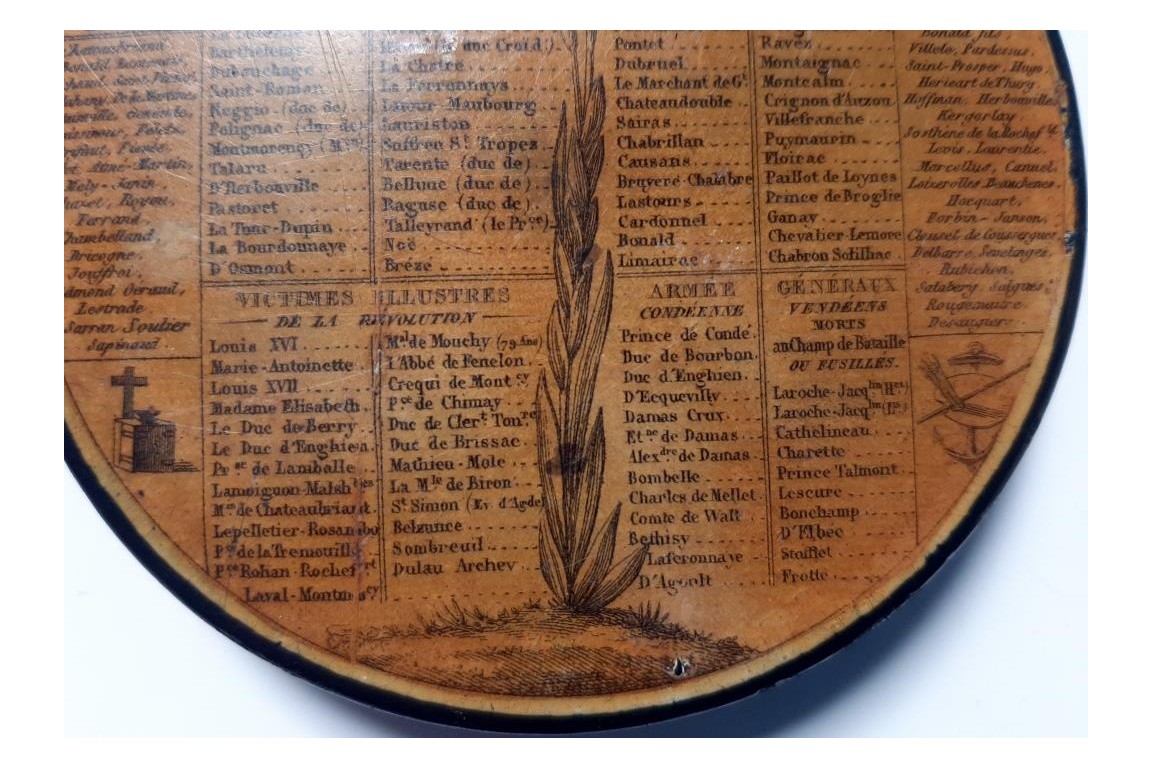 Barthelemy
Dubouchage
Saint-Roman
Reggio (duc de)
Polignac (duc de)
Montmorency
Talaru
D'Herbouville
Pastoret
La Tour-Dupin
La Bourdonnaye
D'Osmont
(le duc Croï d.)
La Chatre
La Ferronnays
Latour-Maubourg
Lauriston
Suffren St. Tropez
Tarente (duc de)
Bellune (duc de)
Raguse (duc de)
Talleyrand (le Pr.ce)
Noë
Brézé
Pontet
Dubruel
Le Marchant de G.t
Chateaudouble
Sairas
Chabrillan
Causans
Bruyere-Chalabre
Lastours
Cardonnel
Bonald
Limairac
Ravez
Montaignac
Montcalm
Crignon d'Auzon
Villefranche
Puymaurin
Floirac
Paillot de Loynes
Prince de Broglie
Ganay
Chevalier-Lemore
Chabron Solilhac
Villele, Pardessus,
Saint-Prosper, Hugo,
Hericart de Thury,
Hoffman, Herbouville
Kergorlay,
Sosthène de la Rochef.ld
Levis, Laurentie,
Marcellus, Cannel,
Loizerolles, Beauchenes,
Hocquart,
Forbin-Janson,
Clausel de Coussergues
Delbarre, Senelinges,
Rubichon,
Salabery, Saigues,
Rougemaire
Desaugiers
Mely-Janin,
Royou,
Ferrand,
Chambelland,
Bricogne,
Jouffroi,
Edmond Geraud,
Lestrade
Sarran Soulier
Sapinaud
VICTIMES ILLUSTRES
DE LA RÉVOLUTION
Louis XVI
Marie-Antoinette
Louis XVII
Madame Elisabeth
Le Duc de Berry
Le Duc d'Enghien
Pr.sse de Lamballe
Lamoignon-Malsh.bes
M.me de Chateaubriant
Lepelletier-Rosambo
P.ce de la Tremouille
P.ce Rohan-Rochef.rt
Laval-Montm.cy
M.al de Mouchy (79 Ans)
l'Abbé de Fenelon
Crequi de Mont.cy
P.ce de Chimay
Duc de Cler.t Ton.re
Duc de Brissac
Mathieu-Mole
La M.le de Biron
St. Simon (Ev. d'Agde)
Belzunce
Sombreuil
Dulau Archev.
ARMÉE
CONDÉENNE
Prince de Condé
Duc de Bourbon
Duc d'Enghien
D'Ecquevilly
Damas Crux
Et.ne de Damas
Alex.dre de Damas
Bombelle
Charles de Mellet
Comte de Wall
Bethisy
Laferonnaye
D'Agoult
GÉNÉRAUX
VENDÉENS
MORTS
au Champ de Bataille
OU FUSILLÉS.
Laroche-Jacq.lin (H.ri)
Laroche-Jacq.lin (L.s)
Cathelineau
Charette
Prince Talmont
Lescure
Bonchamp
D'Elbée
Stofflet
Frotte